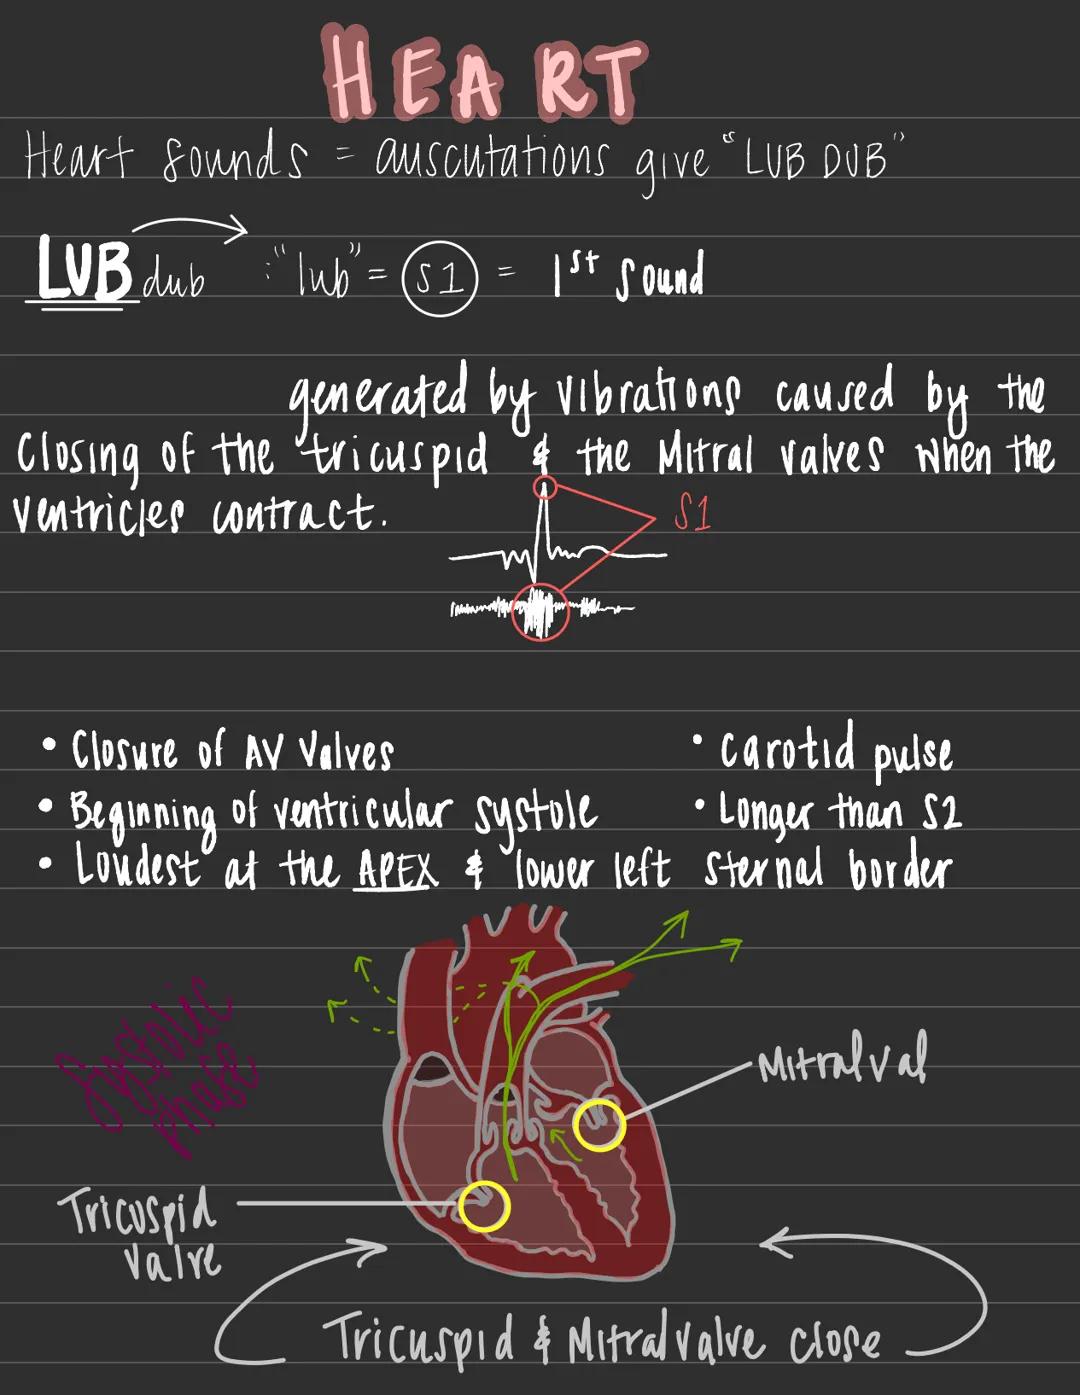 HEART
Heart Sounds = auscutations give "LUB DUB"
LUB dub :"lub" = S1 = 1st Sound
generated by vibrations caused by the
Closing of the tricuspid & the Mitral valves when the
ventricles contract.
S1
• Closure of AV Valves
• Carotid pulse
• Beginning of ventricular systole
• Longer than S2
• Loudest at the APEX & lower left sternal border
Systolic
phase
Mitral val
Tricuspid
valve
Tricuspid & Mitral valve close